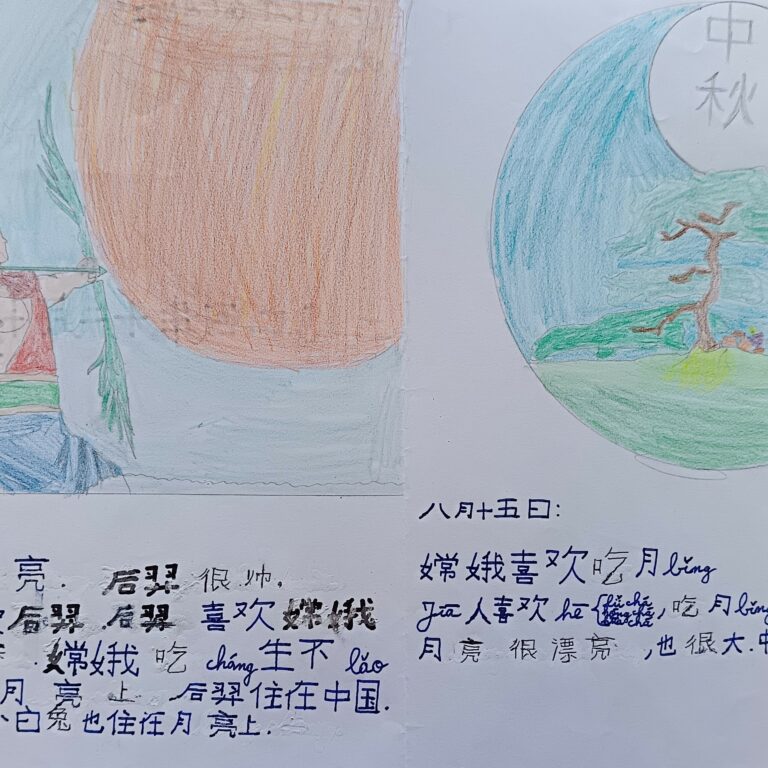 亮. 后羿 很 帅.
后羿 后羿 喜欢 嫦娥
嫦娥 吃 cháng 生不 lǎo
月 亮 上. 后羿住在中国.
小白兔也住在月亮上.
中
秋
八月十五日:
嫦娥喜欢吃月bǐng
Jiā人喜欢 hē ,吃月bǐng
月 亮 很 漂亮 ,也 很 大.中